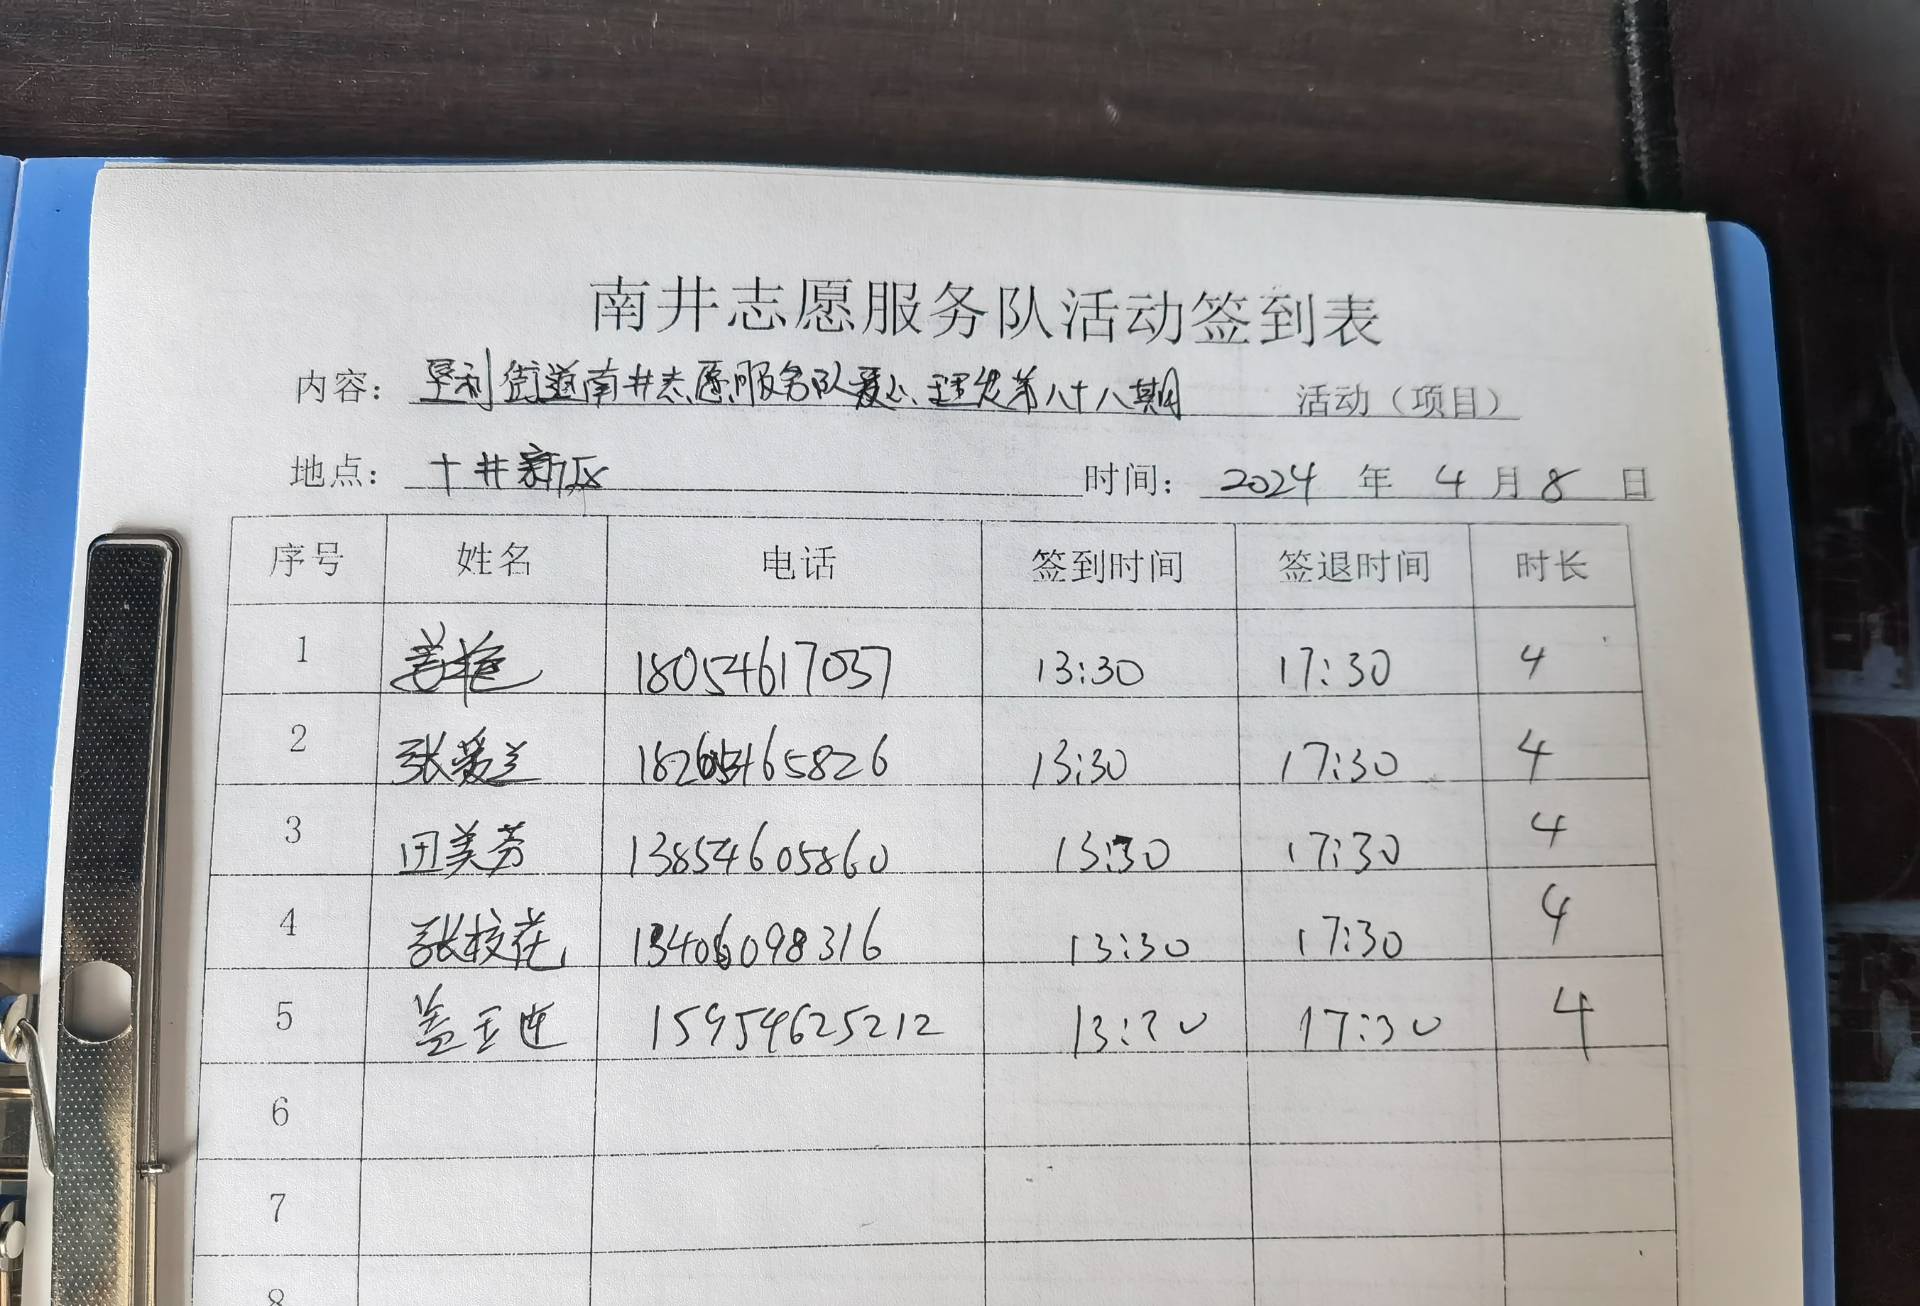 南井志愿服务队活动签到表
内容： 垦利街道南井志愿服务队爱心理发第八十八期 活动（项目）
地点： 十井新区 时间： 2024 年 4 月 8 日
序号 姓名 电话 签到时间 签退时间 时长
1 18054617037 13:30 17:30 4
2 张爱兰 18265465826 13:30 17:30 4
3 田美芳 13854605860 13:30 17:30 4
4 张校花 13406098316 13:30 17:30 4
5 盖玉连 15954625212 13:30 17:30 4
6
7
8